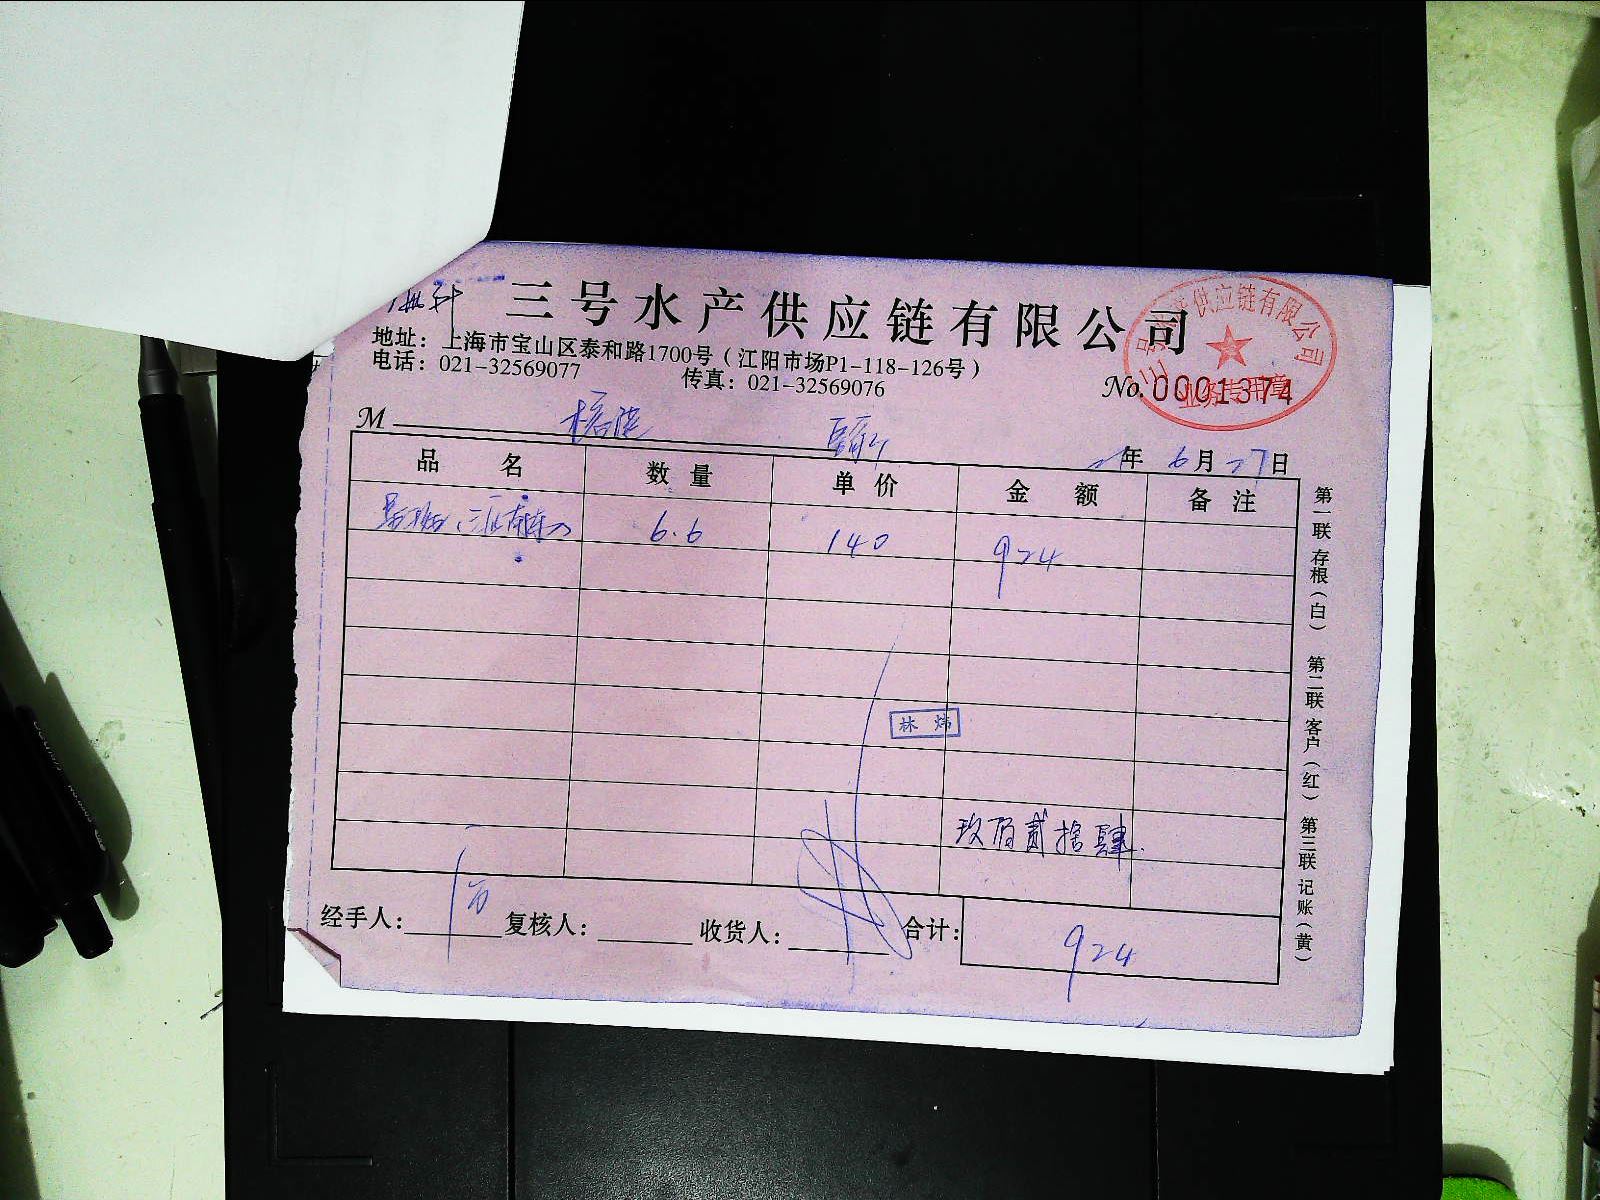 三号水产供应链有限公司
地址：上海市宝山区泰和路1700号（江阳市场P1-118-126号）
电话：021-32569077 传真：021-32569076
No.0001374
三号水产供应链有限公司
业务专用章
M
年 6月27日
品名 数量 单价 金额 备注
6.6 140 924
林炜
玖佰贰拾肆.
经手人： 复核人： 收货人： 合计： 924
第一联 存根（白） 第二联 客户（红） 第三联 记账（黄）